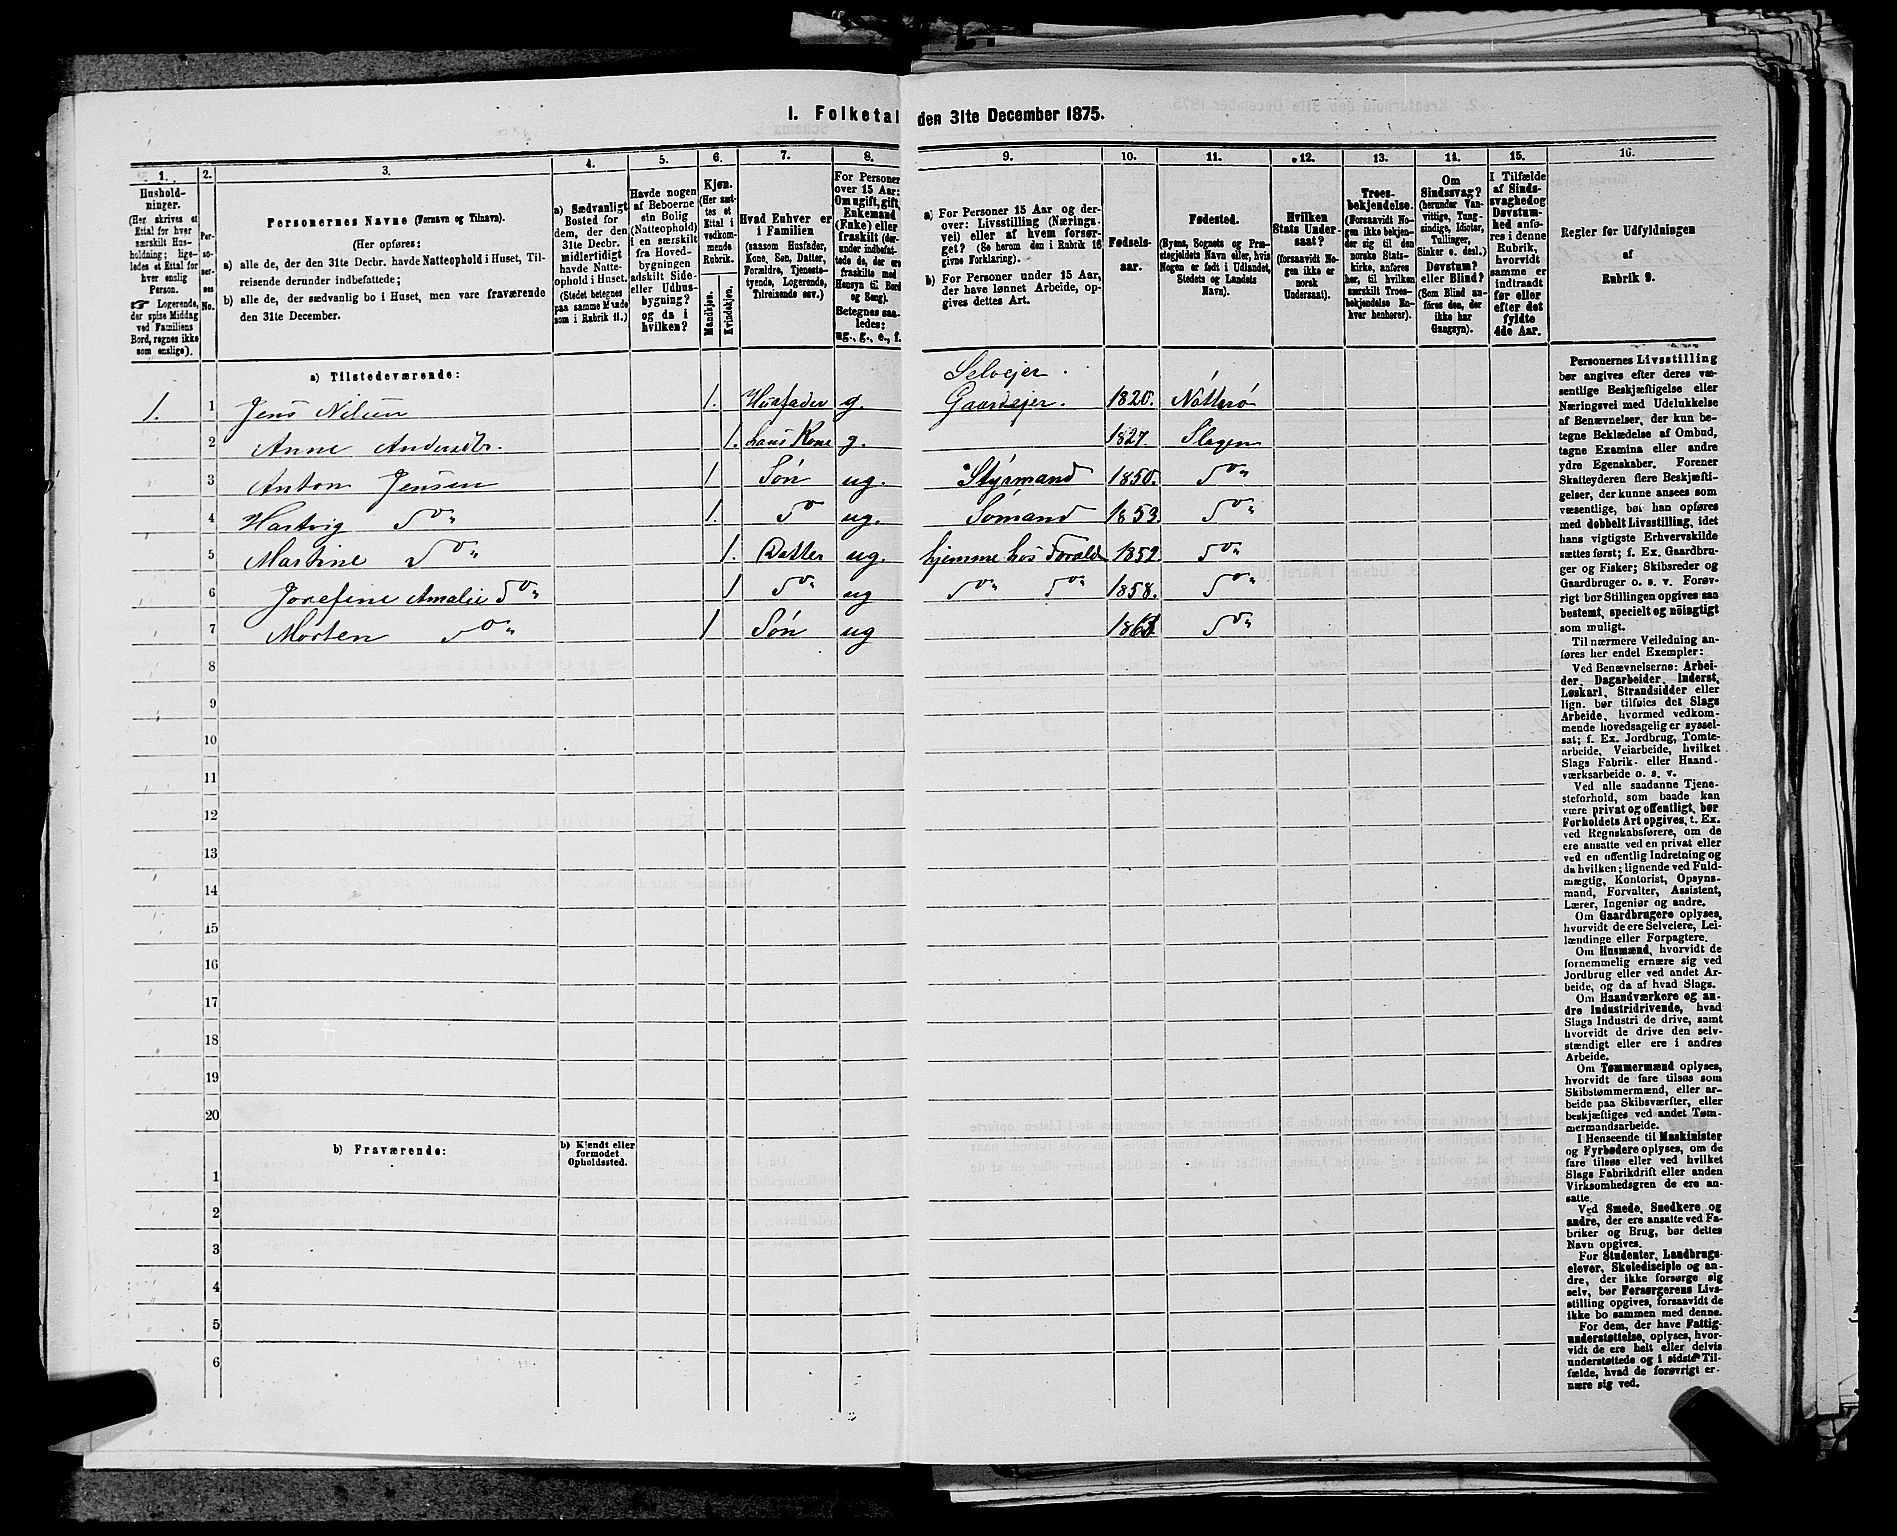 1. Folketal den 31te December 1875.
1. 2. 3. 4. 5. 6. 7. 8. 9. 10. 11. 12. 13. 14. 15. 16.
Hushold-
ninger.
(Her skrives et
Ettal for hver
særskilt Hus-
holdning; lige-
ledes et Ettal for
hver enslig
Person.
☞ Logerende,
der spise Middag
ved Familiens
Bord, regnes ikke
som enslige).
Per-
so-
ner-
nes
No.
Personernes Navne (Fornavn og Tilnavn).
(Her opføres:
a) alle de, der den 31te Decbr. havde Natteophold i Huset, Til-
reisende derunder indbefattede;
b) alle de, der sædvanlig bo i Huset, men vare fraværende
den 31te December.
a) Sædvanligt
Bosted for
dem, der den
31te Decbr.
midlertidigt
havde Natte-
ophold i Huset.
(Stedet betegnes
paa samme Maade
som i Rubrik 11.)
Havde nogen
af Beboerne
sin Bolig
(Natteophold)
i en særskilt
fra Hoved-
bygningen
adskilt Side-
eller Udhus-
bygning?
og da i
hvilken?
Kjøn.
(Her sæt-
tes et
Ettal i
vedkom-
mende
Rubrik.
Mandkjøn.
Kvindekjøn.
Hvad Enhver er
i Familien
(saasom Husfader,
Kone, Søn, Datter,
Forældre, Tjeneste-
tyende, Logerende,
Tilreisende osv.)
For Personer
over 15 Aar:
Om ugift, gift,
Enkemand
(Enke) eller
fraskilt (der-
under indbefat-
tede de, der ere
fraskilte med
Hensyn til Bord
og Seng).
Betegnes saa-
ledes:
ug., g., e., f.
a) For Personer 15 Aar og der-
over: Livsstilling (Nærings-
vei) eller af hvem forsør-
get? (Se herom den i Rubrik 16
givne Forklaring).
b) For Personer under 15 Aar,
der have lønnet Arbeide, op-
gives dettes Art.
Fødsels-
aar.
Fødested.
(Byens, Sognets og Præ-
stegjeldets Navn eller, hvis
Nogen er født i Udlandet,
Stedets og Landets
Navn).
Hvilken
Stats Under-
saat?
(forsaavidt No-
gen ikke er
norsk
Undersaat).
Troes-
bekjendelse.
(Forsaavidt No-
gen ikke bekjen-
der sig til den
norske Stats-
kirke, anføres
her, til hvilken
særskilt Troes-
bekjendelse En-
hver henhører).
Om
Sindssvag?
(herunder Van-
vittige, Tung-
sindige, Idioter,
Tullinger,
Sinker o. desl.)
Døvstum?
eller Blind?
(Som Blind an-
føres den, der
ikke har
Gangsyn).
I Tilfælde
af Sinds-
svaghed og
Døvstum-
hed anfø-
res i denne
Rubrik,
hvorvidt
samme er
indtraadt
før eller
efter det
fyldte
4de Aar.
Regler for Udfyldningen
af
Rubrik 9.
a) Tilstedeværende:
Selvejer.
1. 1 Jens Nilsen 1. Husfader g. Gaardejer. 1820. Nötterö
2 Anne Andersdtr. 1. hans Kone g. 1827. Slagen
3 Anton Jensen 1 Søn ug. Styrmand 1850. Do
4 Hartvig Do 1. Do ug. Sømand 1853. Do
5 Martine Do 1. Datter ug. hjemme hos Foreld 1859 Do
6 Josefine Amalie Do 1 Do ug Do Do 1858. Do
7 Morten Do 1 Søn ug Do
8
9
10
11
12
13
14
15
16
17
18
19
20
b) Fraværende:
b) Kjendt eller
formodet
Opholdssted.
1
2
3
4
5
6
Personernes Livsstilling
bør angives efter deres væ-
sentlige Beskjæftigelse eller
Næringsvei med Udelukkelse
af Benævnelser, der kun be-
tegne Beklædelse af Ombud,
tagne Examina eller andre
ydre Egenskaber. Forener
Skatteyderen flere Beskjæfti-
gelser, der kunne ansees som
væsentlige, bør han opføres
med dobbelt Livsstilling, idet
hans vigtigste Erhvervskilde
sættes først; f. Ex. Gaardbru-
ger og Fisker; Skibsreder og
Gaardbruger o. s. v. Forøv-
rigt bør Stillingen opgives saa
bestemt, specielt og nöiagtigt
som muligt.
Til nærmere Veiledning an-
føres her endel Exempler:
Ved Benævnelserne: Arbei-
der, Dagarbeider, Inderst,
Løskarl, Strandsidder eller
lign. bør tilføies det Slags
Arbeide, hvormed vedkom-
mende hovedsagelig er syssel-
sat; f. Ex. Jordbrug, Tomte-
arbeide, Veiarbeide, hvilket
Slags Fabrik- eller Haand-
værksarbeide o. s. v.
Ved alle saadanne Tjene-
steforhold, som baade kan
være privat og offentligt, bør
Forholdets Art opgives, t. Ex.
ved Regnskabsførere, om de
ere ansatte ved en privat eller
ved en offentlig Indretning og
da hvilken; lignende ved Fuld-
mægtig, Kontorist, Opsyns-
mand, Forvalter, Assistent,
Lærer, Ingeniør og andre.
Om Gaardbrugere oplyses,
hvorvidt de ere Selveiere, Lei-
lændinge eller Forpagtere.
Om Husmænd, hvorvidt de
fornemmelig ernære sig ved
Jordbrug eller ved andet Ar-
beide, og da af hvad Slags.
Om Haandværkere og an-
dre Industridrivende, hvad
Slags Industri de drive, samt
hvorvidt de drive den selv-
stændigt eller ere i andres
Arbeide.
Om Tømmermænd oplyses,
hvorvidt de fare tilsøs som
Skibstømmermænd, eller ar-
beide paa Skibsværfter, eller
beskjæftiges ved andet Tøm-
mermandsarbeide.
I Henseende til Maskinister
og Fyrbødere oplyses, om de
fare tilsøs eller ved hvilket
Slags Fabrikdrift eller anden
Virksomhedsgren de ere an-
satte.
Ved Smede, Snedkere og
andre, der ere ansatte ved Fa-
briker og Brug, bør dettes
Navn opgives.
For Studenter, Landbrugs-
elever, Skoledisciple og an-
dre, der ikke forsørge sig
selv, bør Forsørgerens Livs-
stilling opgives, forsaavidt de
ikke bo sammen med denne.
For dem, der have Fattig-
understøttelse, oplyses, hvor-
vidt de ere helt eller delvis
understøttede og i sidste Til-
fælde, hvad de forøvrigt er-
nære sig ved.